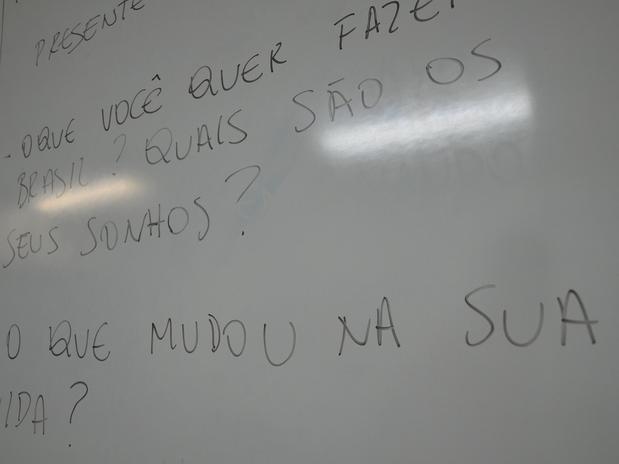 PRESENTE
- O QUE VOCÊ QUER FAZER
BRASIL? QUAIS SÃO OS
SEUS SONHOS?
O QUE MUDOU NA SUA
VIDA?